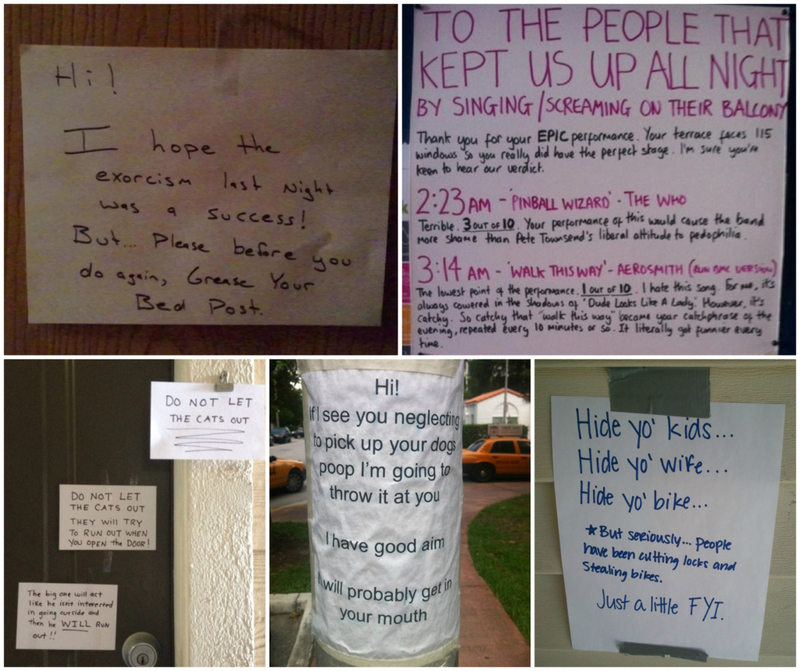 Hi!
I hope the
exorcism last Night
was a success!
But... Please before you
do again, Grease Your
Bed Post.
TO THE PEOPLE THAT
KEPT US UP ALL NIGHT
BY SINGING/SCREAMING ON THEIR BALCONY
Thank you for your EPIC performance. Your terrace faces 115
windows so you really did have the perfect stage. I'm sure you're
keen to hear our verdict.
2:23 AM - 'PINBALL WIZARD' - THE WHO
Terrible. 3 OUT OF 10. Your performance of this would cause the band
more shame than Pete Townsend's liberal attitude to pedophilia.
3:14 AM - 'WALK THIS WAY' - AEROSMITH (RUN DMC VERSION)
The lowest point of the performance. 1 out of 10. I hate this song. For me, it's
always covered in the shadows of 'Dude Looks Like A Lady'. However, it's
catchy. So catchy that "walk this way" became your catchphrase of the
evening, repeated every 10 minutes or so. It literally got funnier every
time.
DO NOT LET
THE CATS OUT
DO NOT LET
THE CATS OUT
THEY WILL TRY
TO RUN OUT WHEN
YOU OPEN THE DOOR!
The big one will act
like he isnt interested
in going outside and
then he WILL RUN
out!!
Hi!
If I see you neglecting
to pick up your dogs
poop I'm going to
throw it at you
I have good aim
I will probably get in
your mouth
Hide yo' kids...
Hide yo' wife...
Hide yo' bike...
*But seriously... people
have been cutting locks and
stealing bikes.
Just a little FYI.